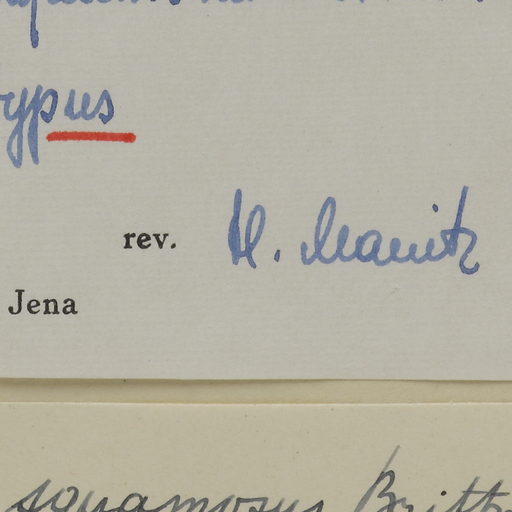 ypus
rev. H. Manitz
Jena
squamosus Britt